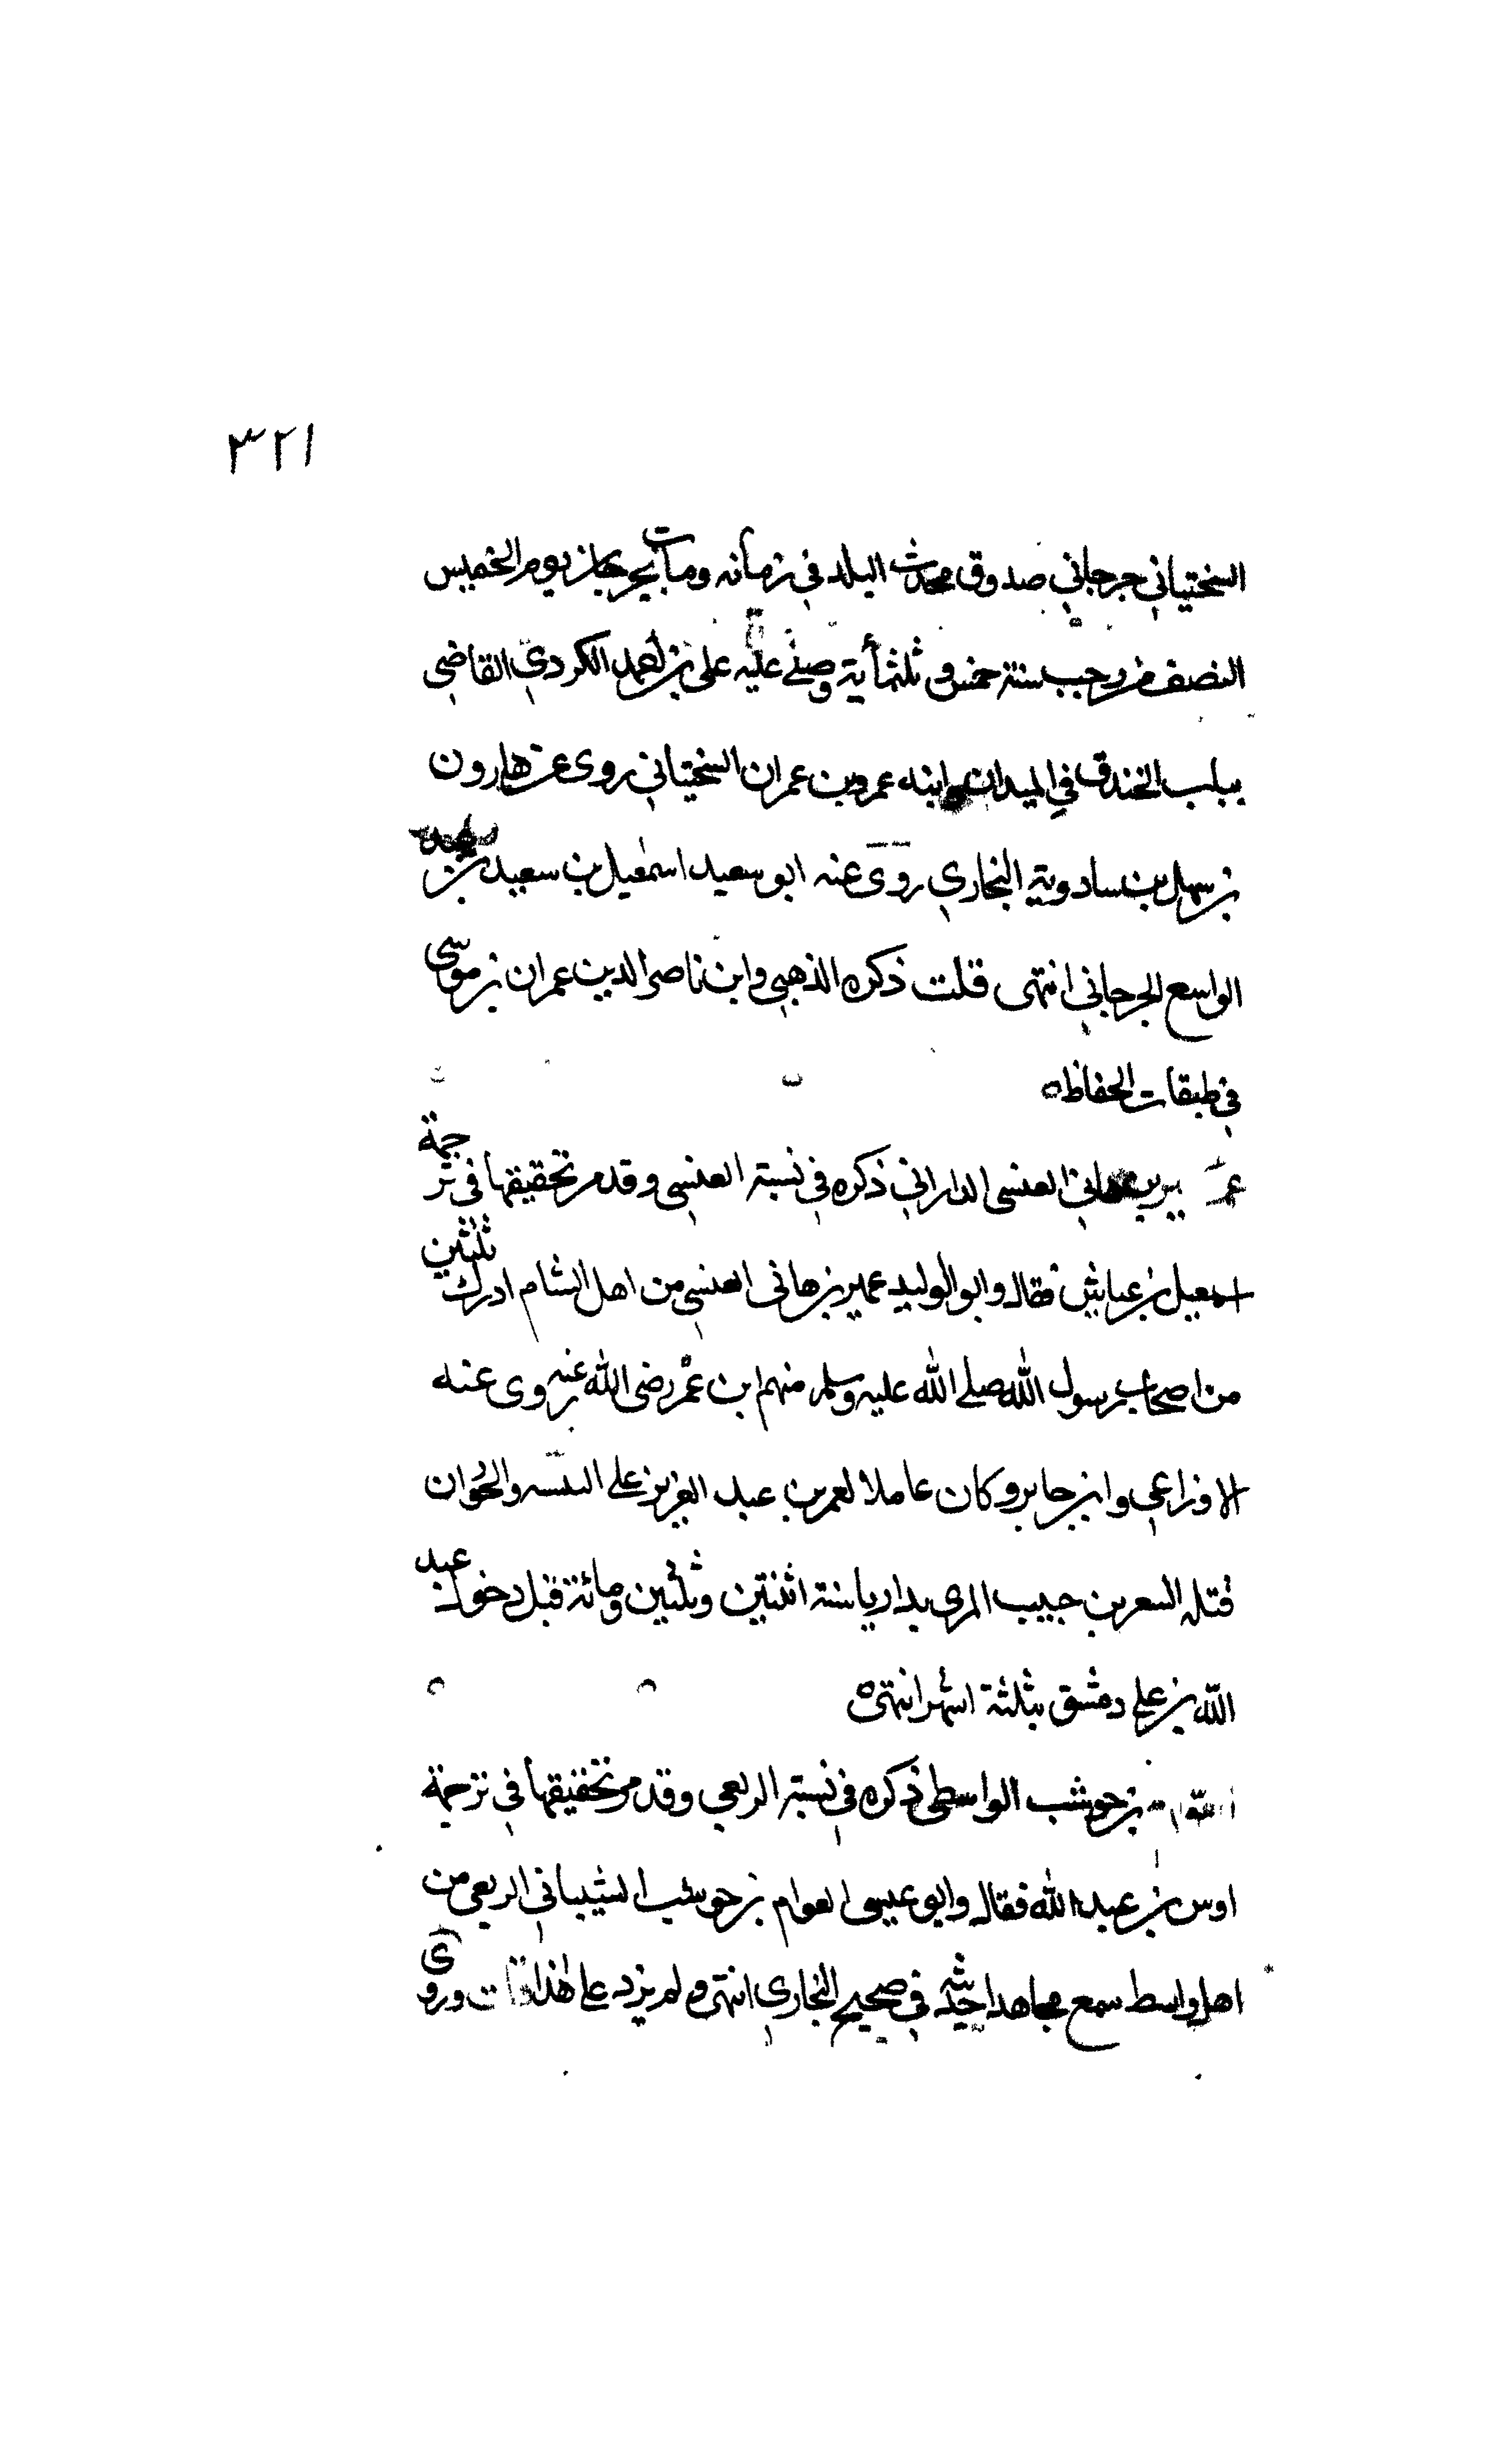 ٣٢١
السختياني جرجاني صدوق محدث البلد في زمانه ومات بجرجان يوم الخميس
النصف من رجب سنة خمس وثلثمأية وصلى عليه على بن احمد الكردي القاضي
بباب الخندق في الميدان وابنه عمرو بن عمران السختياني روى عن هارون
بن سهل بن سادوية البخاري روى عنه ابو سعيد اسمعيل بن سعيد بن عبد
الواسع الجرجاني انتهى قلت ذكره الذهبي وابن ناصر الدين عمران بن موسى
في طبقات الحفاظ
عمير بن هاني العنسي الداراني ذكره في نسبة العنسي وقد مر تحقيقها في ترجمة
اسمعيل بن عياش فقال وابو الوليد عمير بن هانى العنسي من اهل الشام ادرك ثلثين
من اصحاب رسول الله صلى الله عليه وسلم منهم ابن عمر رضى الله عنه روى عنه
الاوزاعي وابن جابر وكان عاملا لعمر بن عبد العزيز على والحوران
قتله السعر بن حبيب المرى بداريا سنة اثنتين وثلثين ومائة قبل دخول عبد
الله بن على دمشق بثلثة اشهر انتهى
العوام بن حوشب الواسطى ذكره في نسبة الربعي وقد مر تحقيقها في ترجمة
اوس بن عبد الله فقال وابو عيسى العوام بن حوشب الشيباني الربعي من
اهل واسط سمع مجاهدا حديثه في صحيح البخاري انتهى ولم يزد على هذا وروى